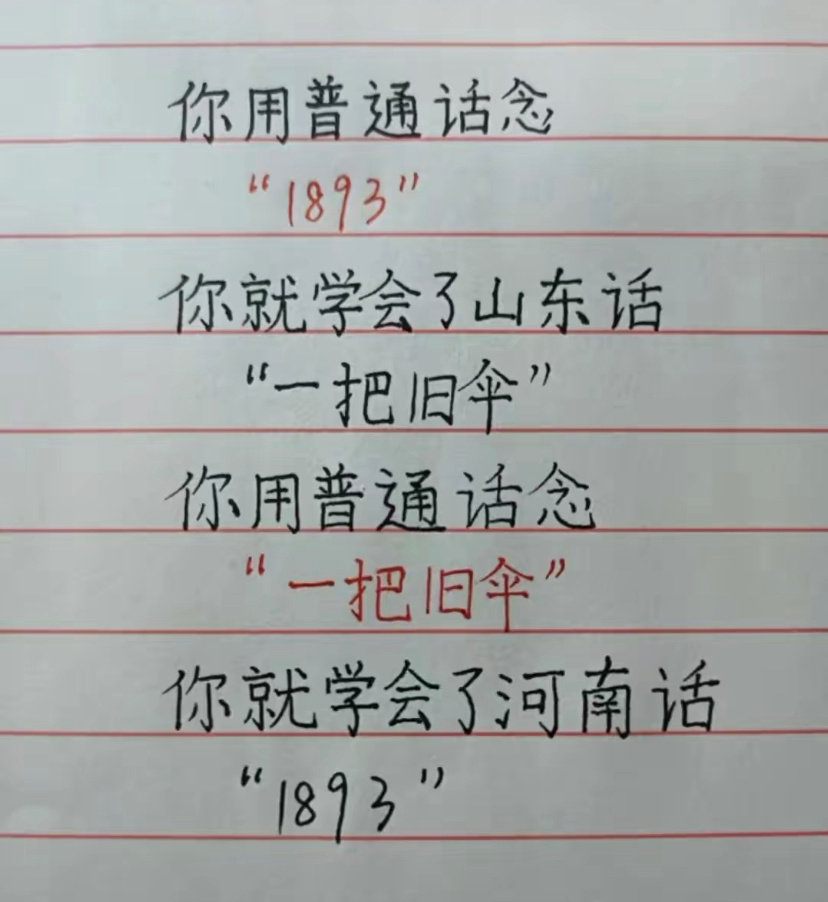 你用普通话念
“1893”
你就学会了山东话
“一把旧伞”
你用普通话念
“一把旧伞”
你就学会了河南话
“1893”